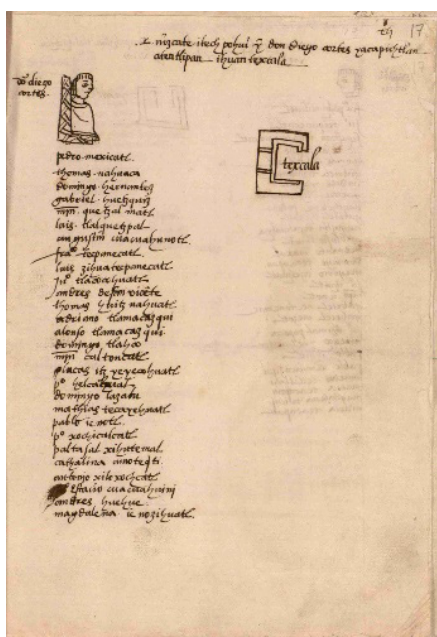 17
nizcate itech pohui y don diego cortes yacapichtlan
atentlipan ihuan texcala
do diego
cortes
texcala
pedro mexicatl
thomas nahuaca
domingo hernandez
gabriel huetzqui
mīn quetzalmatl
luis tlalquetzpal
augustin cuacuahunotl
fraco tecpanecatl
luis zihuatecpanecatl
juo tlacochuatl
andres vicete
thomas nahuatl
adriano tlamacazqui
alonso tlamacazqui
domingo tlahco
mīn caltoncatl
lucas itz yeyecohuatl
po
domingo lazaru
mathias tecayehuatl
pablo icnotl
po xochicalcatl
paltasal xihutemal
cathalina
antonio xilexochcatl
estaiso cuacuahuini
andres huehue
magdalena icnozihuatl